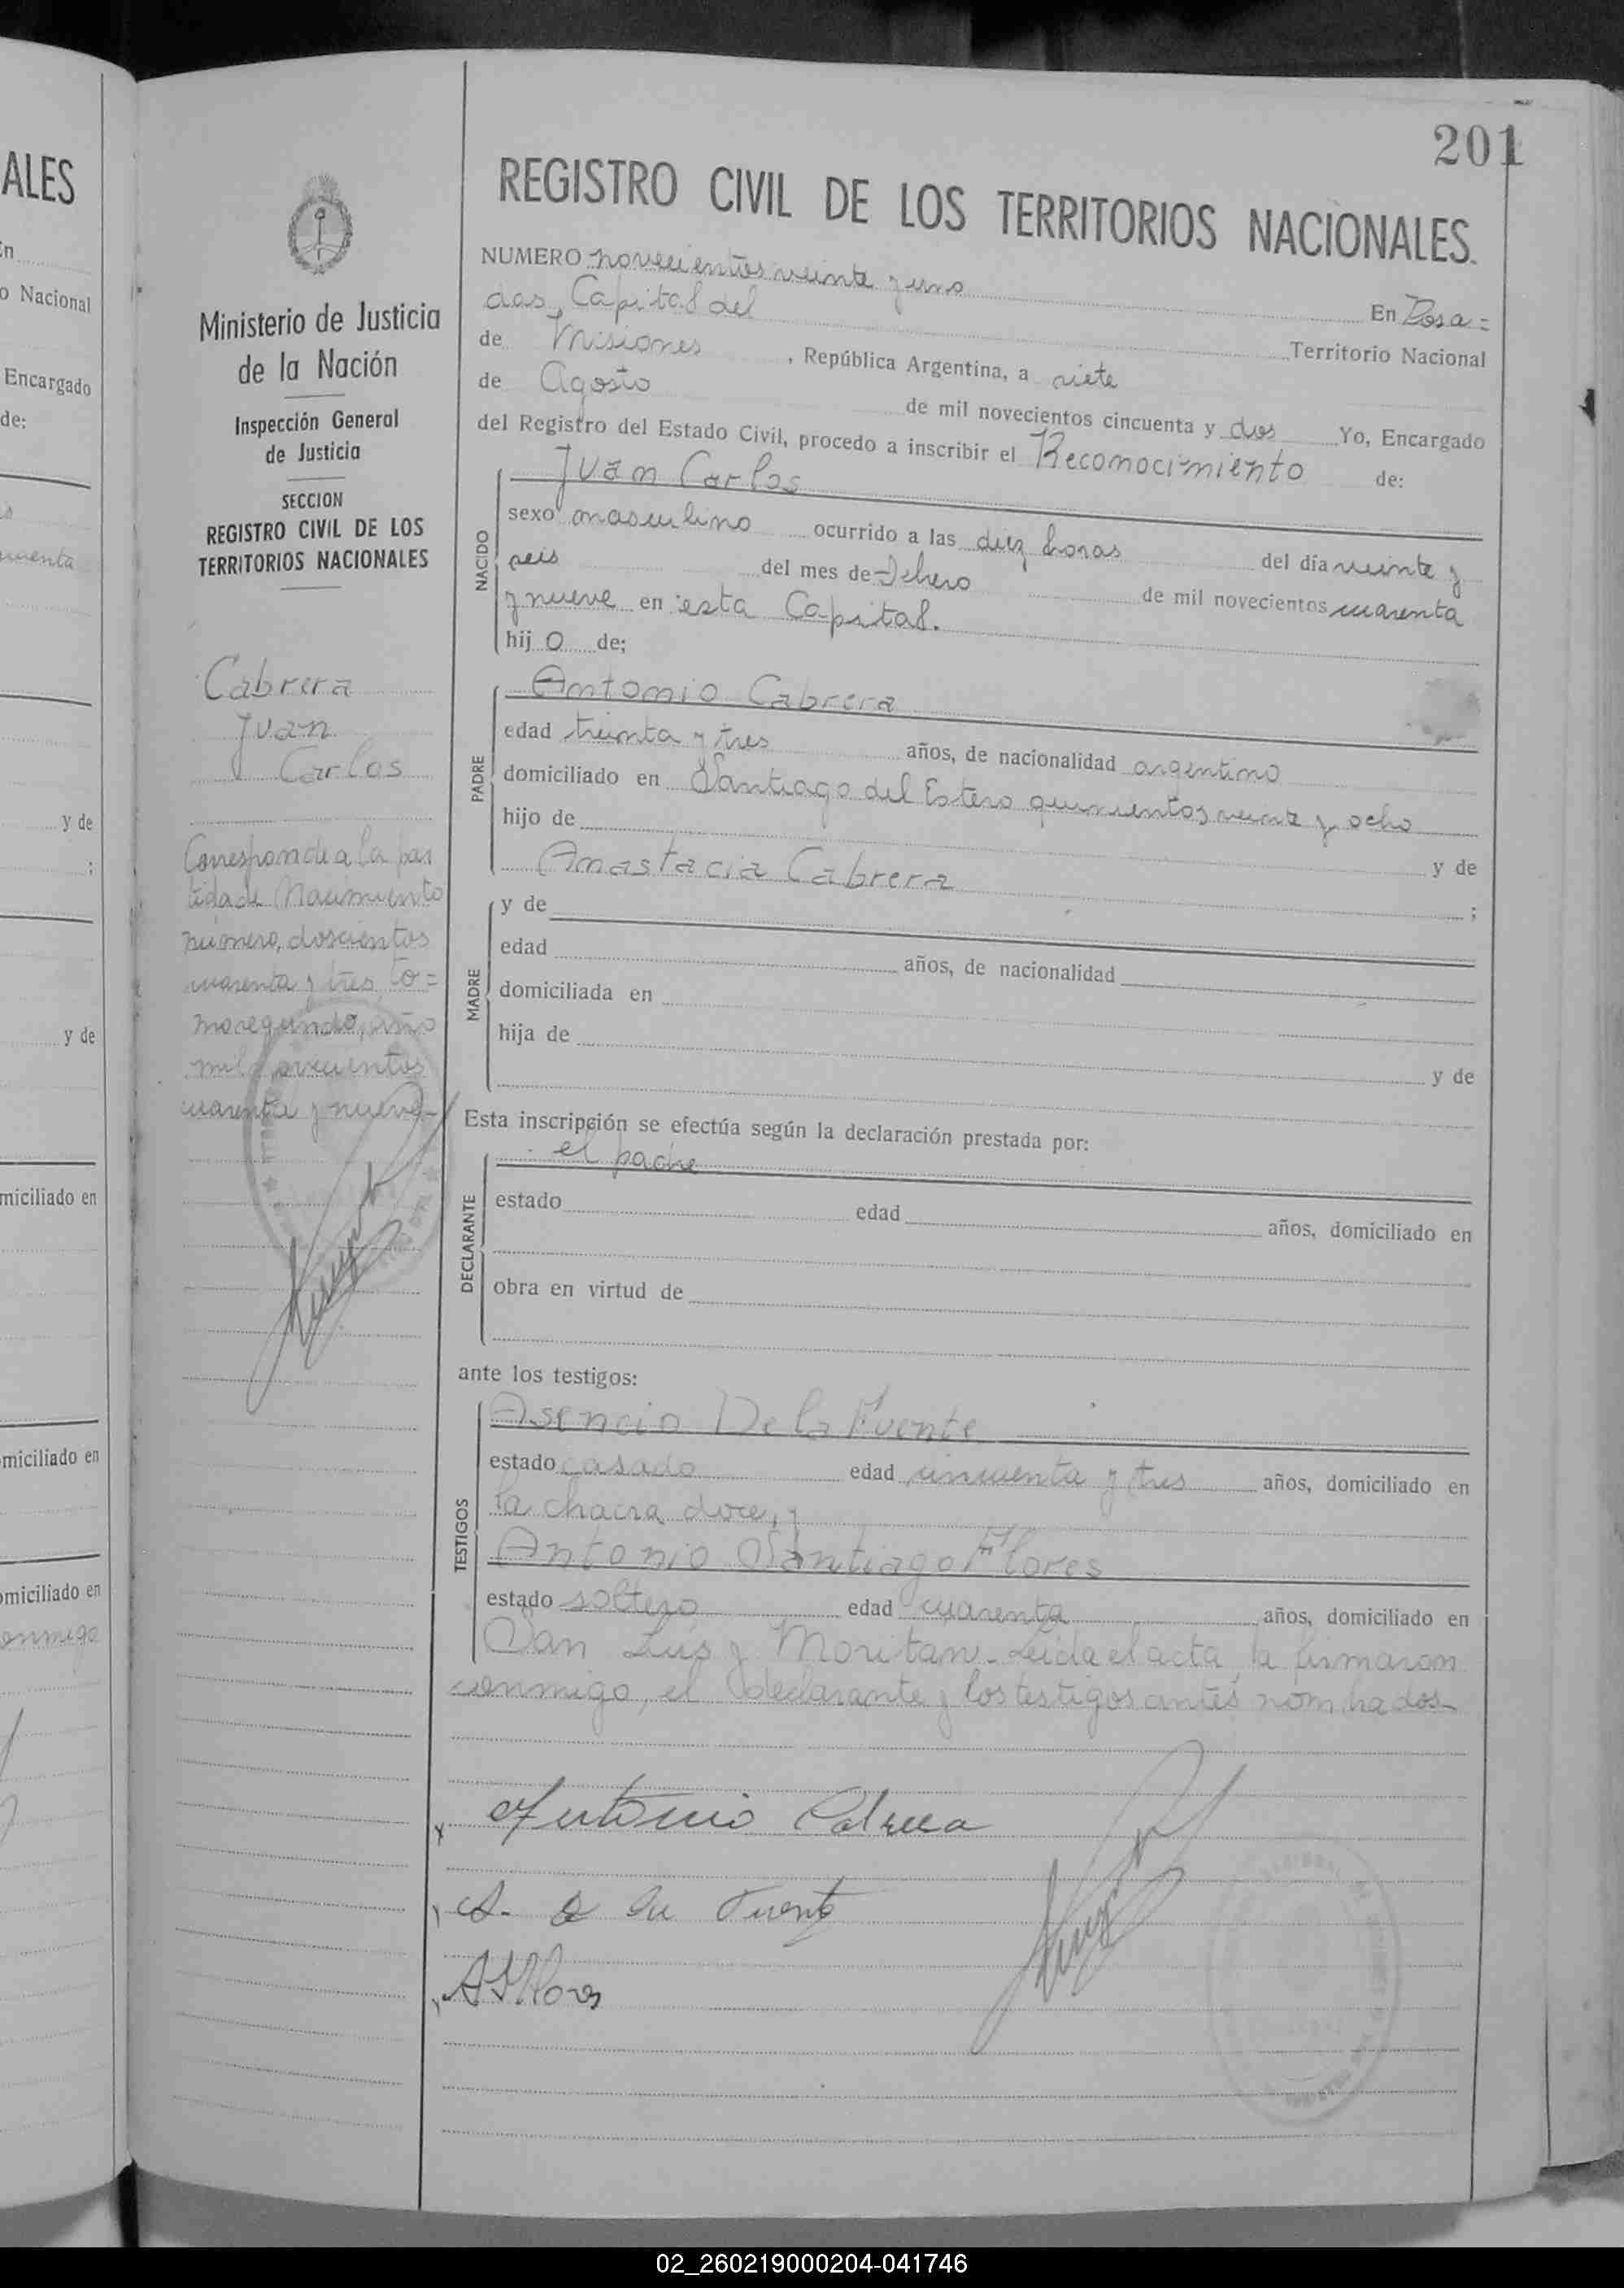 201
REGISTRO CIVIL DE LOS TERRITORIOS NACIONALES.
NUMERO novecientos veinte y uno En Posa=
das, Capital del Territorio Nacional
de Misiones, República Argentina, a siete
de Agosto de mil novecientos cincuenta y dos Yo, Encargado
del Registro del Estado Civil, procedo a inscribir el Reconocimiento de:
NACIDO
Juan Carlos
sexo masculino ocurrido a las diez horas del día veinte y
seis del mes de Febrero de mil novecientos cuarenta
y nueve en esta Capital.
hij o de;
PADRE
Antonio Cabrera
edad treinta y tres años, de nacionalidad argentino
domiciliado en Santiago del Estero quinientos veinte y ocho
hijo de y de
Anastacia Cabrera ;
MADRE
y de
edad años, de nacionalidad
domiciliada en
hija de
y de
Esta inscripción se efectúa según la declaración prestada por:
DECLARANTE
el padre
estado edad años, domiciliado en
obra en virtud de
ante los testigos:
TESTIGOS
Asencio De la Fuente
estado casado edad cincuenta y tres años, domiciliado en
la chacra doce, y
Antonio Santiago Flores
estado soltero edad cuarenta años, domiciliado en
San Luis y Moritán. Leída el acta, la firmaron
conmigo, el declarante y los testigos antes nombrados-
Antonio Cabrera
A. de la Fuente
A S Flores
Ministerio de Justicia
de la Nación
Inspección General
de Justicia
SECCION
REGISTRO CIVIL DE LOS
TERRITORIOS NACIONALES
Cabrera
Juan
Carlos
Corresponde a la par
tida de Nacimiento
número, doscientos
cuarenta y tres, to=
mo segundo, año
mil novecientos
cuarenta y nueve-
ALES
En
o Nacional
Encargado
de:
y de
;
y de
miciliado en
omiciliado en
omiciliado en
onmigo
02_260219000204-041746